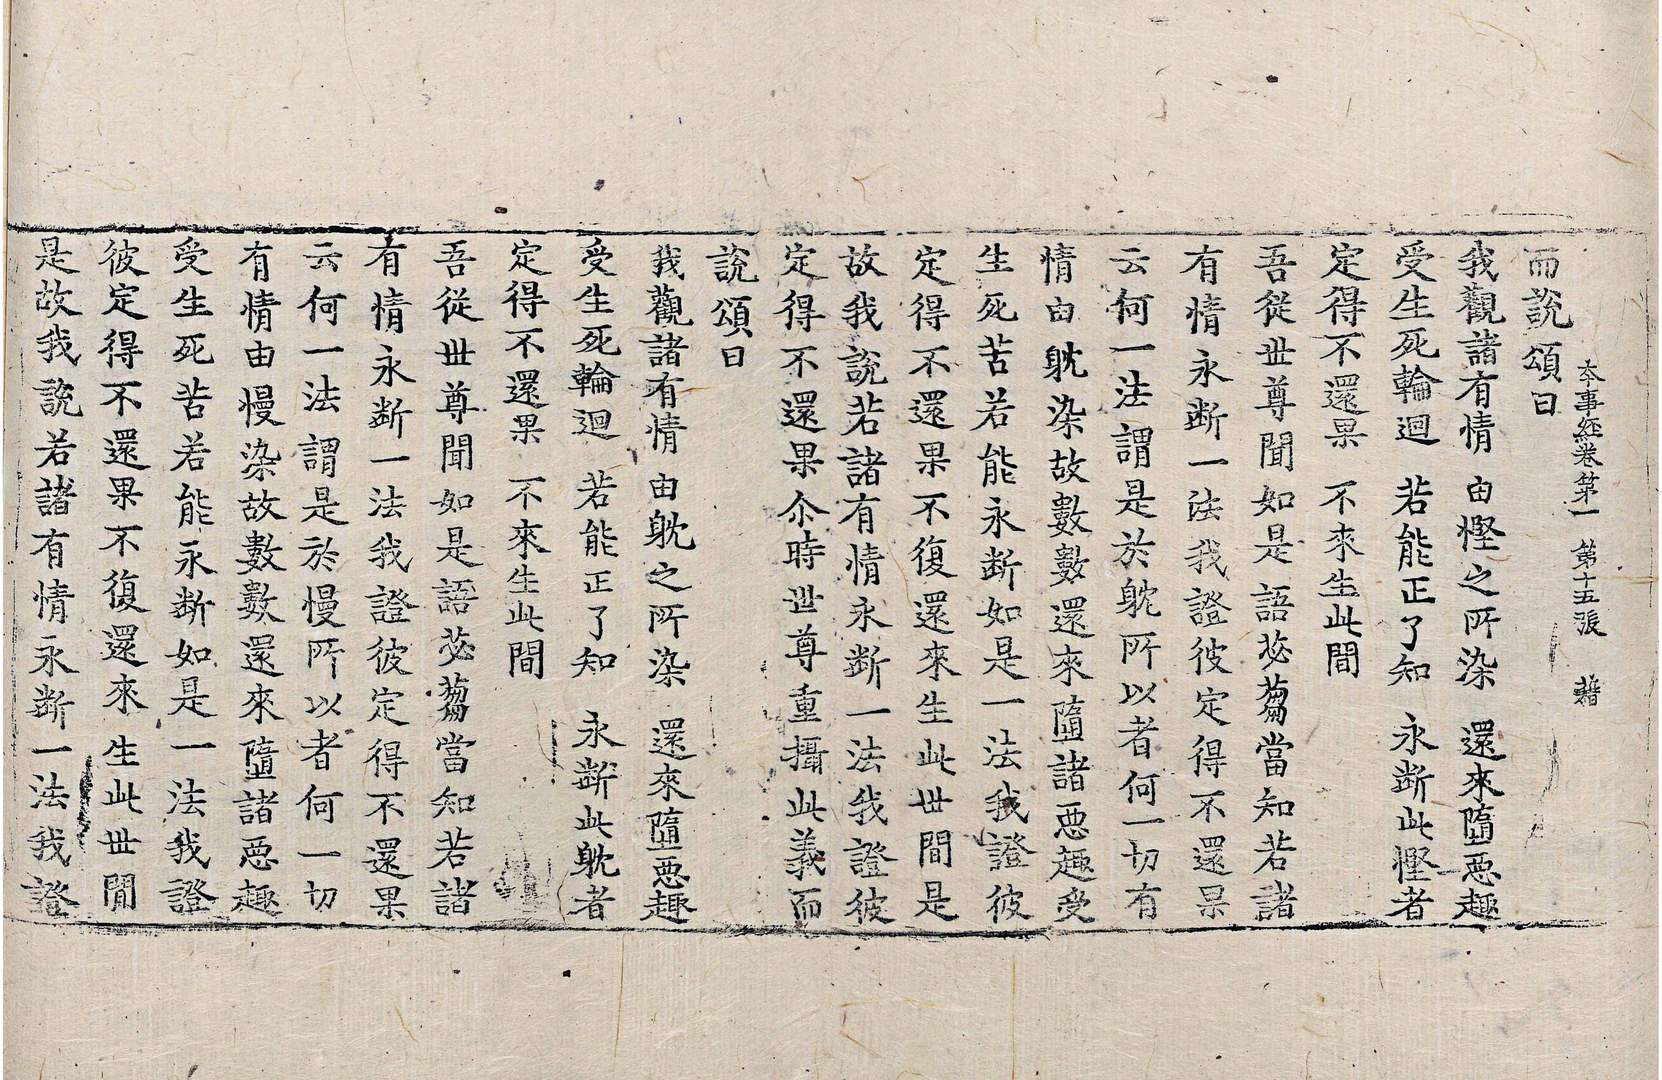 本事経卷第一 第十五張 藉
而說頌曰
我觀諸有情 由慳之所染 還來墮惡趣
受生死輪迴 若能正了知 永断此慳者
定得不還果 不來生此間
吾從世尊聞如是語苾蒭當知若諸
有情永断一法我證彼定得不還果
云何一法謂是於躭所以者何一切有
情由躭染故數數還來墮諸惡趣受
生死苦若能永断如是一法我證彼
定得不還果不復還來生此世間是
故我說若諸有情永断一法我證彼
定得不還果尒時世尊重攝此義而
說頌曰
我觀諸有情 由躭之所染 還來墮惡趣
受生死輪迴 若能正了知 永断此躭者
定得不還果 不來生此間
吾從世尊聞如是語苾蒭當知若諸
有情永断一法我證彼定得不還果
云何一法謂是於慢所以者何一切
有情由慢染故數數還來墮諸惡趣
受生死苦若能永断如是一法我證
彼定得不還果不復還來生此世間
是故我說若諸有情永断一法我證